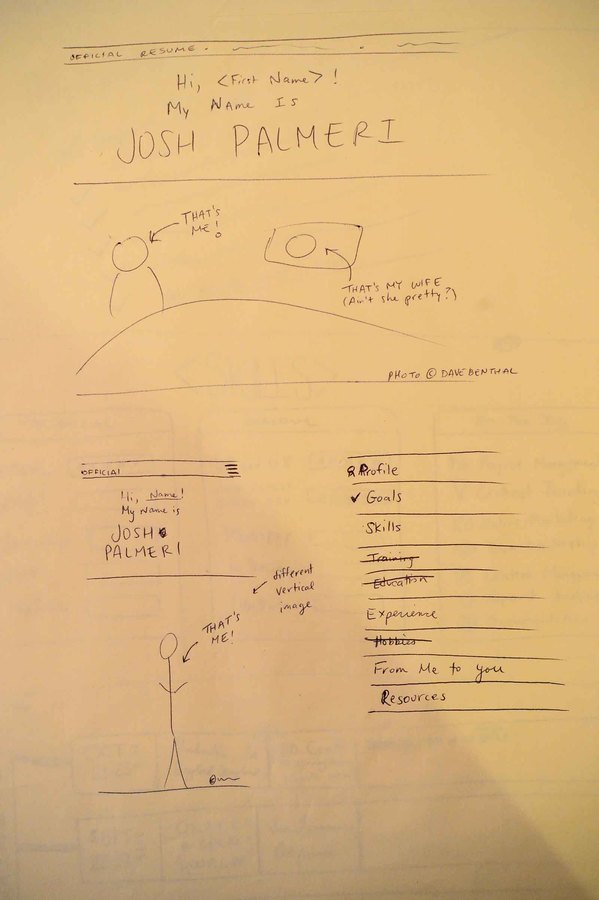 OFFICIAL RESUME.
Hi, <First Name>!
My Name Is
JOSH PALMERI
THAT'S
ME!
THAT'S MY WIFE
(Ain't she pretty?)
PHOTO © DAVE BENTHAL
OFFICIAL
Hi, Name!
My Name is
JOSH
PALMERI
different
vertical
image
THAT'S
ME!
Profile
✓ Goals
Skills
Training
Education
Experience
Hobbies
From Me to you
Resources